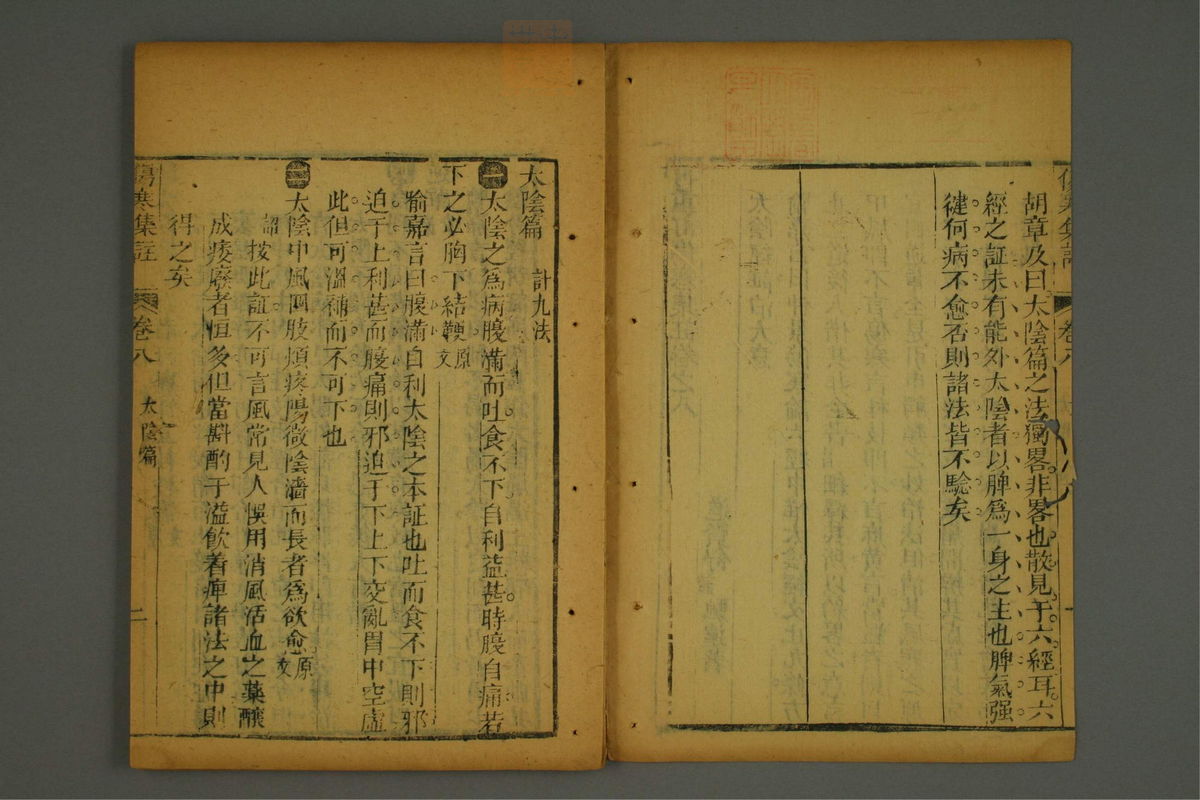 胡章及曰太陰篇之法獨畧非畧也散見于六經耳六
經之証未有能外太陰者以脾爲一身之主也脾氣强
徤何病不愈否則諸法皆不驗矣
太陰篇 計九法
一 太陰之爲病腹滿而吐食不下自利益甚時腹自痛若
下之必胸下結鞕原文
喻嘉言曰腹滿自利太陰之本証也吐而食不下則邪
迫于上利甚而腹痛則邪迫于下上下交亂胃中空虛
此但可溫補而不可下也
二 太陰中風四肢煩疼陽微陰濇而長者爲欲愈原文
詔按此証不可言風常見人悞用消風活血之藥釀
成痿廢者恒多但當斟酌于溢飲着痺諸法之中則
得之矣
傷寒集註 卷八 太陰篇 二